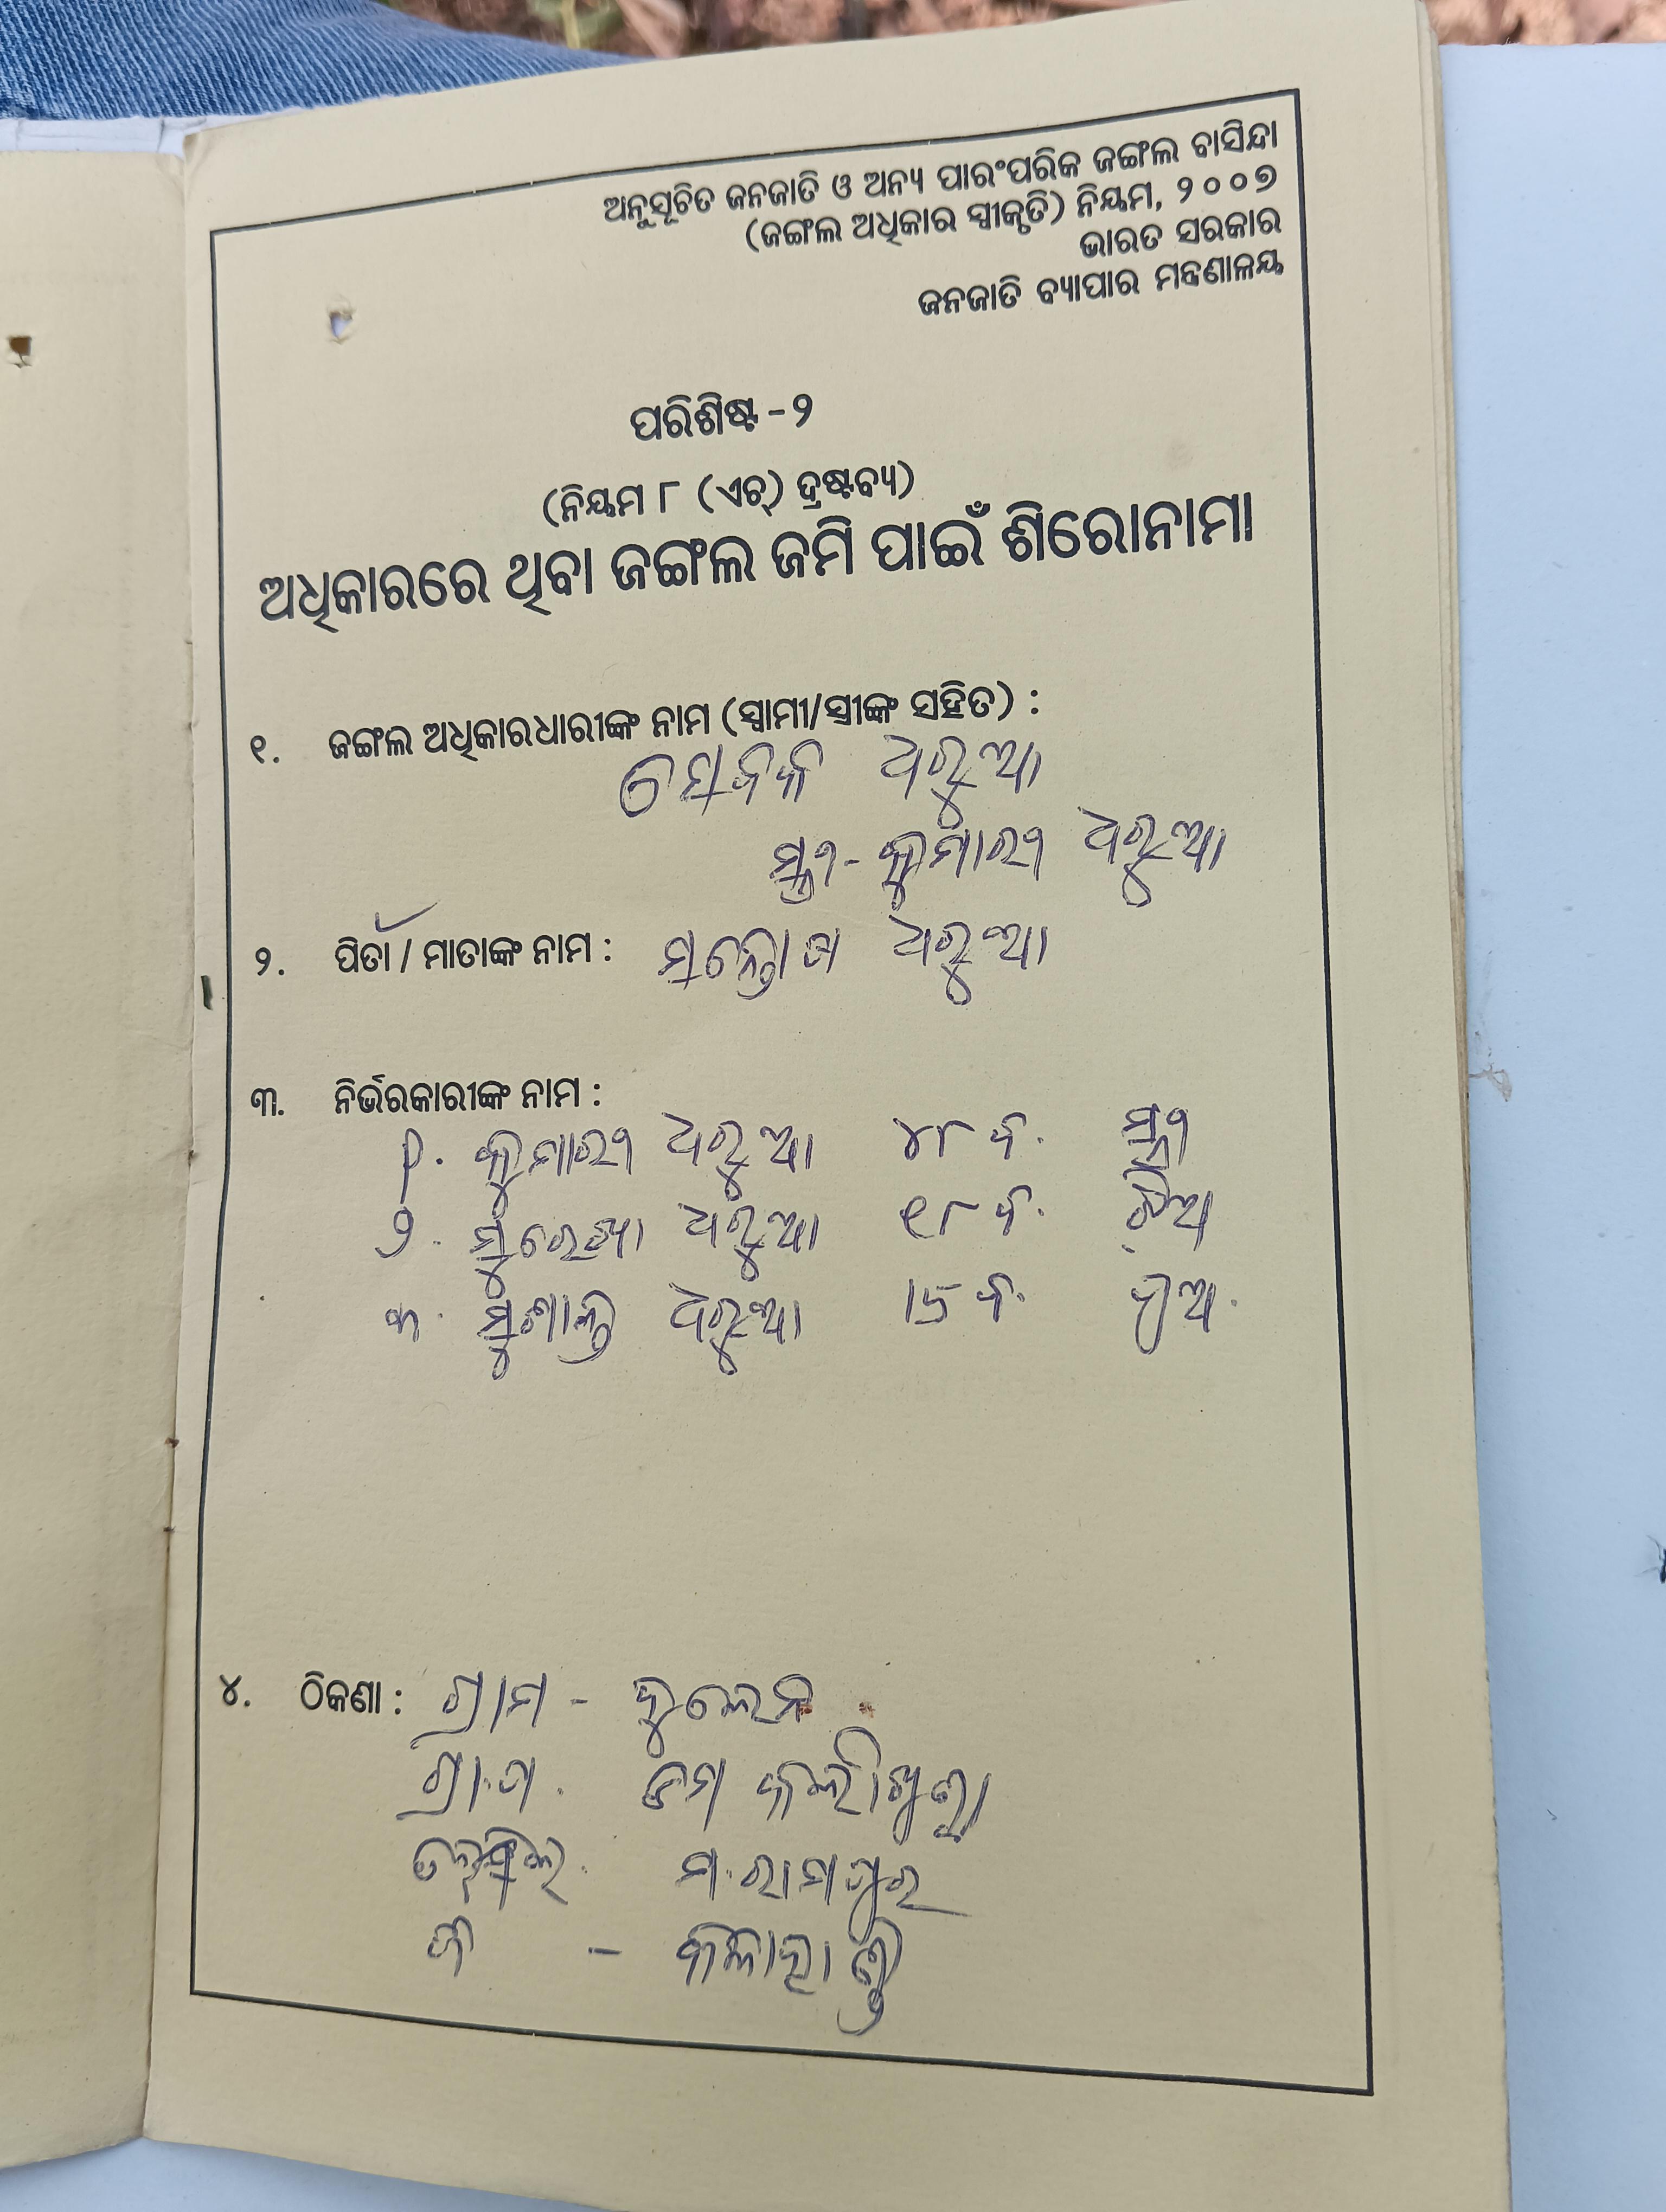 ଅନୁସୂଚିତ ଜନଜାତି ଓ ଅନ୍ୟ ପାରଂପରିକ ଜଙ୍ଗଲ ବାସିନ୍ଦା
(ଜଙ୍ଗଲ ଅଧିକାର ସ୍ୱୀକୃତି) ନିୟମ, ୨୦୦୭
ଭାରତ ସରକାର
ଜନଜାତି ବ୍ୟାପାର ମନ୍ତ୍ରଣାଳୟ
ପରିଶିଷ୍ଟ -୨
(ନିୟମ ୮ (ଏଚ୍) ଦ୍ରଷ୍ଟବ୍ୟ)
ଅଧିକାରରେ ଥିବା ଜଙ୍ଗଲ ଜମି ପାଇଁ ଶିରୋନାମା
୧. ଜଙ୍ଗଲ ଅଧିକାରଧାରୀଙ୍କ ନାମ (ସ୍ୱାମୀ/ସ୍ତ୍ରୀଙ୍କ ସହିତ) :
ଧରୁଆ
ସ୍ତ୍ରୀ - କୁମାରୀ ଧରୁଆ
୨. ପିତା / ମାତାଙ୍କ ନାମ : ସନ୍ତୋଷ ଧରୁଆ
୩. ନିର୍ଭରକାରୀଙ୍କ ନାମ :
୧. କୁମାରୀ ଧରୁଆ ୪୮ ବ. ସ୍ତ୍ରୀ
୨. ସୁରେଖା ଧରୁଆ ୧୮ ବ. ଝିଅ
୩. ସୁଶାନ୍ତ ଧରୁଆ ୧୫ ବ. ପୁଅ.
୪. ଠିକଣା : ଗ୍ରାମ -
ଗ୍ରା.ପ.
ତହସିଲ. ମ.ରାମପୁର
ଜି - କଳାହାଣ୍ଡି